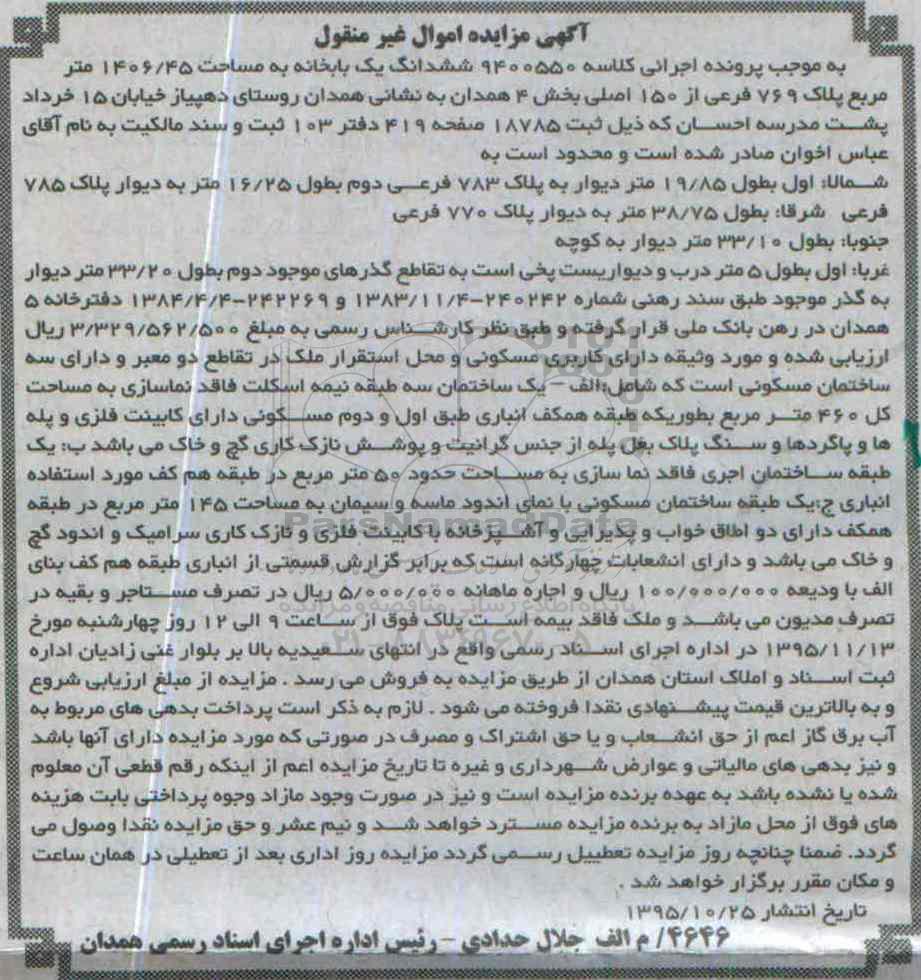 آگهی مزایده اموال غیر منقول
به موجب پرونده اجرائی کلاسه ۹۴۰۰۵۵۰ ششدانگ یک بابخانه به مساحت ۱۴۰۶/۴۵ متر
مربع پلاک ۷۶۹ فرعی از ۱۵۰ اصلی بخش ۴ همدان به نشانی همدان روستای دهپیاز خیابان ۱۵ خرداد
پشت مدرسه احسان که ذیل ثبت ۱۸۷۸۵ صفحه ۴۱۹ دفتر ۱۰۳ ثبت و سند مالکیت به نام آقای
عباس اخوان صادر شده است و محدود است به
شمالا: اول بطول ۱۹/۸۵ متر دیوار به پلاک ۷۸۳ فرعی دوم بطول ۱۶/۲۵ متر به دیوار پلاک ۷۸۵
فرعی شرقا: بطول ۳۸/۷۵ متر به دیوار پلاک ۷۷۰ فرعی
جنوبا: بطول ۳۳/۱۰ متر دیوار به کوچه
غربا: اول بطول ۵ متر درب و دیواریست پخی است به تقاطع گذرهای موجود دوم بطول ۳۳/۲۰ متر دیوار
به گذر موجود طبق سند رهنی شماره ۲۴۰۲۴۲-۱۳۸۳/۱۱/۴ و ۲۴۲۲۶۹-۱۳۸۴/۴/۴ دفترخانه ۵
همدان در رهن بانک ملی قرار گرفته و طبق نظر کارشناس رسمی به مبلغ ۳/۳۲۹/۵۶۲/۵۰۰ ریال
ارزیابی شده و مورد وثیقه دارای کاربری مسکونی و محل استقرار ملک در تقاطع دو معبر و دارای سه
ساختمان مسکونی است که شامل:الف - یک ساختمان سه طبقه نیمه اسکلت فاقد نماسازی به مساحت
کل ۴۶۰ متر مربع بطوریکه طبقه همکف انباری طبق اول و دوم مسکونی دارای کابینت فلزی و پله
ها و پاگردها و سنگ پلاک بغل پله از جنس گرانیت و پوشش نازک کاری گچ و خاک می باشد ب: یک
طبقه ساختمان اجری فاقد نما سازی به مساحت حدود ۵۰ متر مربع در طبقه هم کف مورد استفاده
انباری ج:یک طبقه ساختمان مسکونی با نمای اندود ماسه و سیمان به مساحت ۱۴۵ متر مربع در طبقه
همکف دارای دو اطاق خواب و پذیرایی و آشپزخانه با کابینت فلزی و نازک کاری سرامیک و اندود گچ
و خاک می باشد و دارای انشعابات چهارگانه است که برابر گزارش قسمتی از انباری طبقه هم کف بنای
الف با ودیعه ۱۰۰/۰۰۰/۰۰۰ ریال و اجاره ماهانه ۵/۰۰۰/۰۰۰ ریال در تصرف مستاجر و بقیه در
تصرف مدیون می باشد و ملک فاقد بیمه است پلاک فوق از ساعت ۹ الی ۱۲ روز چهارشنبه مورخ
۱۳۹۵/۱۱/۱۳ در اداره اجرای اسناد رسمی واقع در انتهای سعیدیه بالا بر بلوار غنی زادیان اداره
ثبت اسناد و املاک استان همدان از طریق مزایده به فروش می رسد . مزایده از مبلغ ارزیابی شروع
و به بالاترین قیمت پیشنهادی نقدا فروخته می شود . لازم به ذکر است پرداخت بدهی های مربوط به
آب برق گاز اعم از حق انشعاب و یا حق اشتراک و مصرف در صورتی که مورد مزایده دارای آنها باشد
و نیز بدهی های مالیاتی و عوارض شهرداری و غیره تا تاریخ مزایده اعم از اینکه رقم قطعی آن معلوم
شده یا نشده باشد به عهده برنده مزایده است و نیز در صورت وجود مازاد وجوه پرداختی بابت هزینه
های فوق از محل مازاد به برنده مزایده مسترد خواهد شد و نیم عشر و حق مزایده نقدا وصول می
گردد. ضمنا چنانچه روز مزایده تعطیل رسمی گردد مزایده روز اداری بعد از تعطیلی در همان ساعت
و مکان مقرر برگزار خواهد شد .
تاریخ انتشار ۱۳۹۵/۱۰/۲۵
۴۶۴۶/ م الف جلال حدادی - رئیس اداره اجرای اسناد رسمی همدان
ParsNamadData
پایگاه اطلاع رسانی مناقصه و مزایده